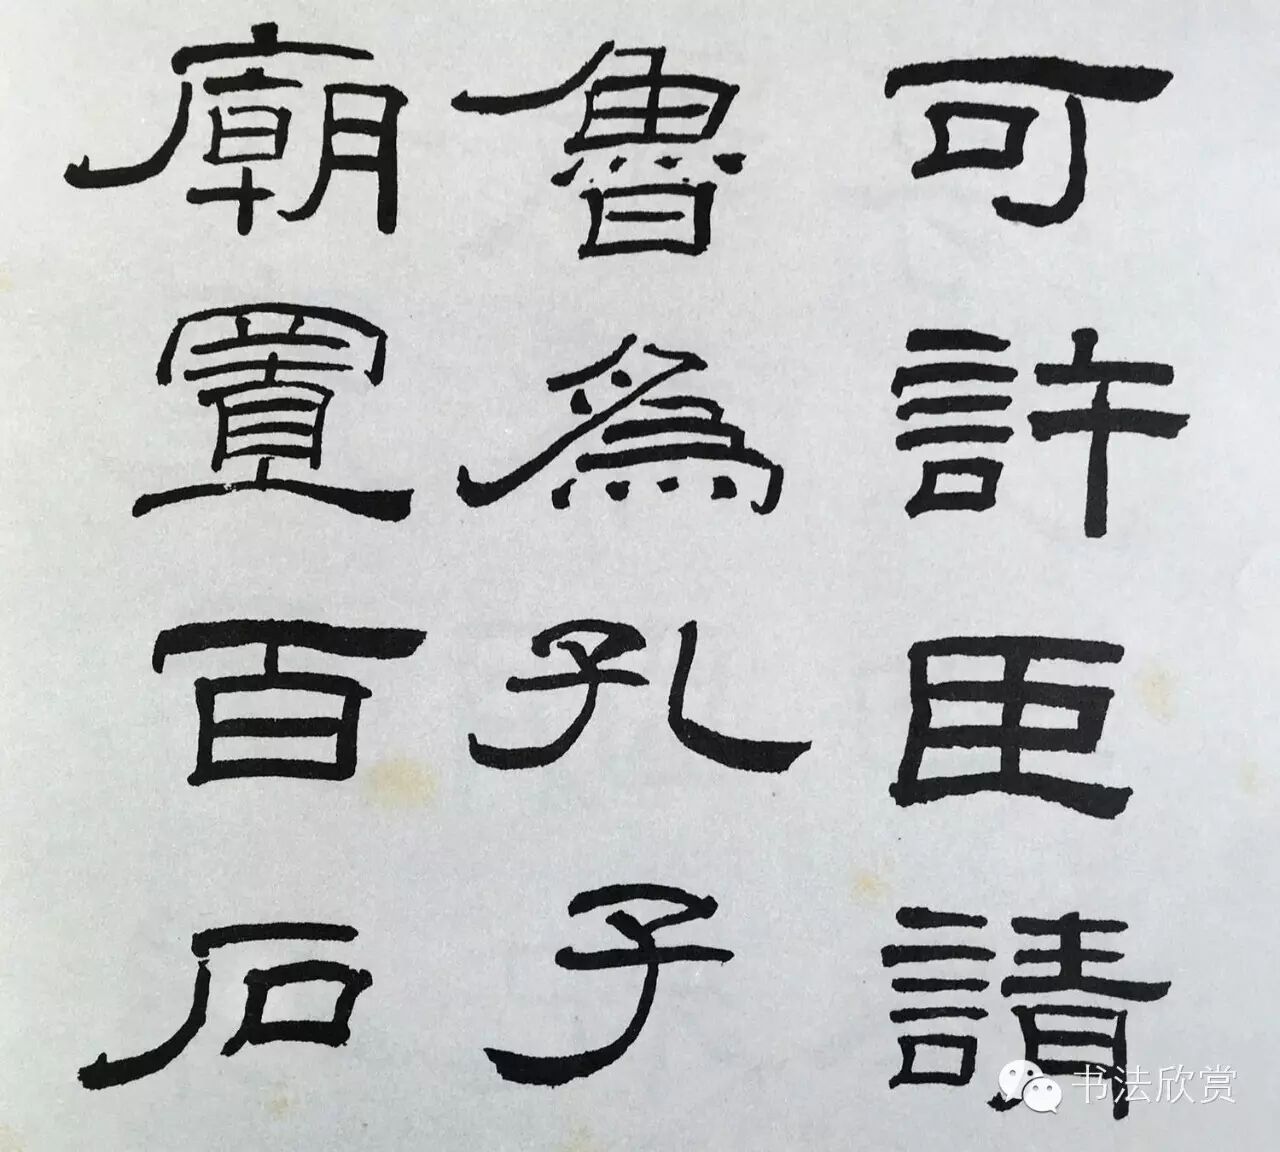 可許臣請
魯為孔子
廟置百石
书法欣赏